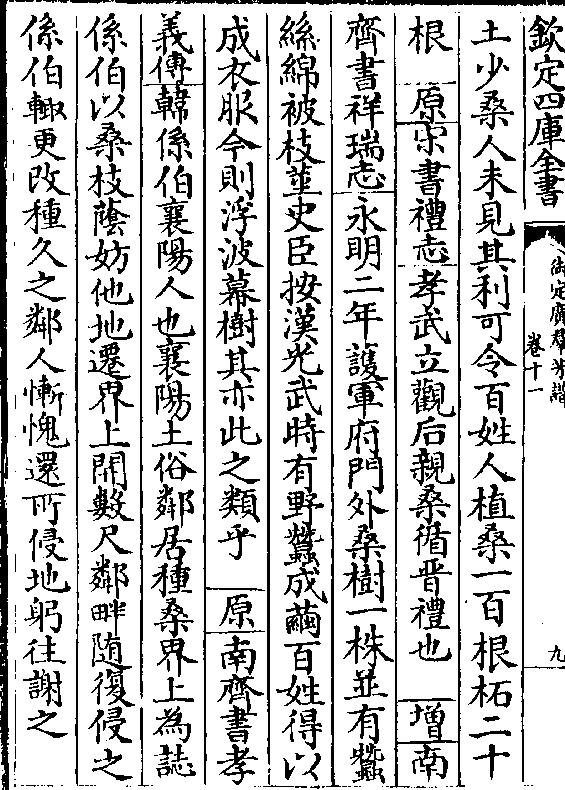 欽定四庫全書
御定廣羣芳譜
卷十一
九
土少桑人未見其利可令百姓人植桑一百根柘二十
根 原宋書禮志孝武立觀后親桑循晋禮也 增南
齊書祥瑞志永明二年護軍府門外桑樹一株並有蠶
絲綿被枝莖史臣按漢光武時有野蠶成繭百姓得以
成衣服今則浮波幕樹其亦此之類乎 原南齊書孝
義傳韓係伯襄陽人也襄陽土俗鄰居種桑界上為誌
係伯以桑枝蔭妨他地遷界上開數尺鄰畔随復侵之
係伯輙更改種久之鄰人慚愧還所侵地躬往謝之